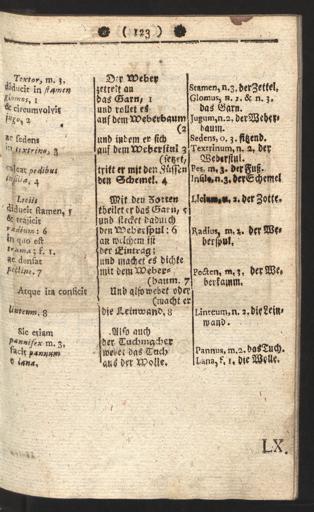 ( 123 )
Textor, m. 3.
diducit in stamen
glomus, 1
& circumvolvit
jugo, 2
ac sedens
in textrino, 3
calcat pedibus
insilia, 4
Liciis
diducit stamen, 5
& trajicit
radium: 6
in quo est
trama; f. 1.
ac densat
pectine, 7
Atque ita conficit
linteum. 8
Sic etiam
pannifex m. 3,
facit pannum
e lana.
Der Weber
zettelt an
das Garn, 1
und rollet es
auf dem Weberbaum
(2
und indem er sich
auf dem Weberstul 3
(setzet,
tritt er mit den Füssen
den Schemel. 4
Mit den Zotten
theilet er das Garn, 5
und stecket dadurch
den Weberspul: 6
an welchem ist
der Eintrag;
und machet es dichte
mit dem Weber-
(baum. 7
Und also webet oder
(macht er
die Leinwand, 8
Also auch
der Tuchmacher
webet das Tuch
aus der Wolle.
Stamen, n. 3. der Zettel.
Glomus, n. 2. & n. 3.
das Garn.
Jugum, n. 2. der Weber-
baum.
Sedens, o. 3. sitzend.
Textrinum, n. 2. der
Weberstul.
Pes, m. 3. der Fuß.
Insile, n. 3. der Schemel
Licium, n. 2. der Zotte.
Radius, m. 2. der We-
berspul.
Pecten, m. 3. der We-
berkamm.
Linteum, n. 2. die Lein-
wand.
Pannus, m. 2. das Tuch.
Lana, f. 1. die Wolle.
LX.